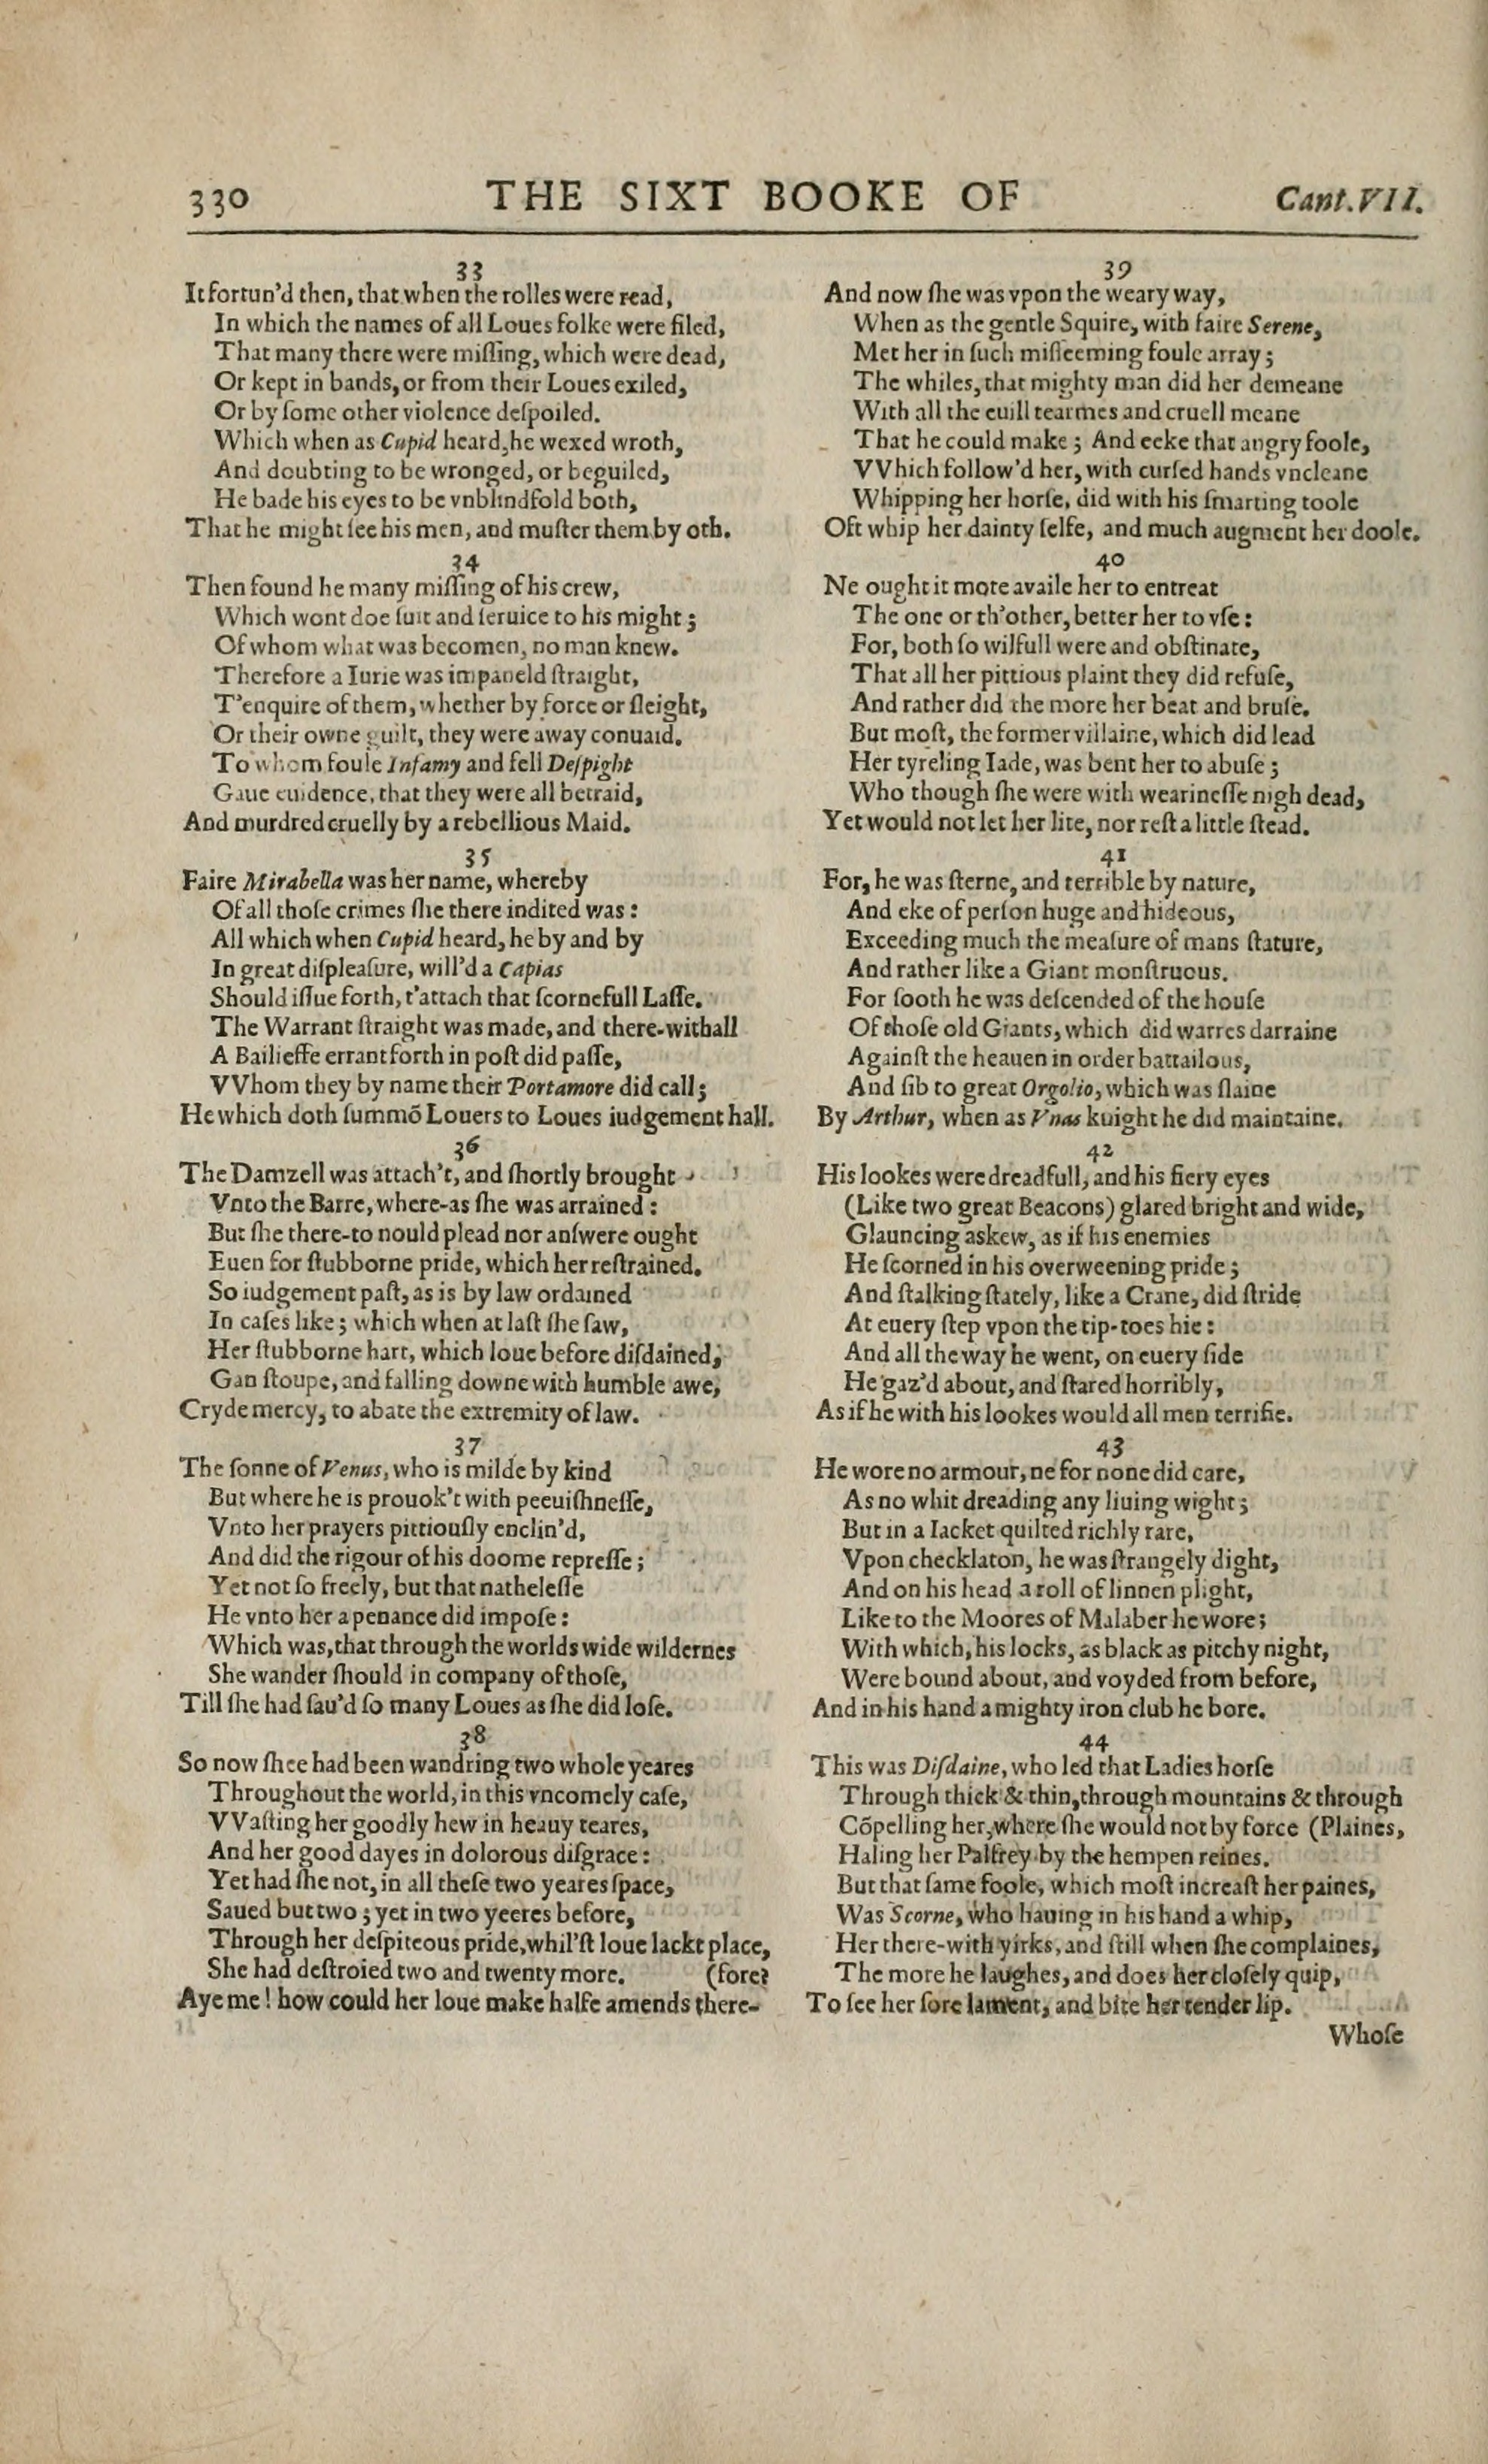 330 THE SIXT BOOKE OF Cant.VII.
33
It fortun'd then, that when the rolles were read,
In which the names of all Loues folke were filed,
That many there were miſſing, which were dead,
Or kept in bands, or from their Loues exiled,
Or by ſome other violence deſpoiled.
Which when as Cupid heard, he wexed wroth,
And doubting to be wronged, or beguiled,
He bade his eyes to be vnblindfold both,
That he might ſee his men, and muſter them by oth.
34
Then found he many miſſing of his crew,
Which wont doe ſuit and ſeruice to his might;
Of whom what was becomen, no man knew.
Therefore a Iurie was impaneld ſtraight,
T'enquire of them, whether by force or ſleight,
Or their owne guilt, they were away conuaid.
To whom foule Infamy and fell Deſpight
Gaue euidence, that they were all betraid,
And murdred cruelly by a rebellious Maid.
35
Faire Mirabella was her name, whereby
Of all thoſe crimes ſhe there indited was:
All which when Cupid heard, he by and by
In great diſpleaſure, will'd a Capias
Should iſſue forth, t'attach that ſcornefull Laſſe.
The Warrant ſtraight was made, and there-withall
A Bailieffe errant forth in poſt did paſſe,
VVhom they by name their Portamore did call;
He which doth ſummõ Louers to Loues iudgement hall.
36
The Damzell was attach't, and ſhortly brought
Vnto the Barre, where-as ſhe was arrained:
But ſhe there-to nould plead nor anſwere ought
Euen for ſtubborne pride, which her reſtrained.
So iudgement paſt, as is by law ordained
In caſes like; which when at laſt ſhe ſaw,
Her ſtubborne hart, which loue before diſdained,
Gan ſtoupe, and falling downe with humble awe,
Cryde mercy, to abate the extremity of law.
37
The ſonne of Venus, who is milde by kind
But where he is prouok't with peeuiſhneſſe,
Vnto her prayers pittiouſly enclin'd,
And did the rigour of his doome repreſſe;
Yet not ſo freely, but that natheleſſe
He vnto her a penance did impoſe:
Which was, that through the worlds wide wildernes
She wander ſhould in company of thoſe,
Till ſhe had ſau'd ſo many Loues as ſhe did loſe.
38
So now ſhee had been wandring two whole yeares
Throughout the world, in this vncomely caſe,
VVaſting her goodly hew in heauy teares,
And her good dayes in dolorous diſgrace:
Yet had ſhe not, in all theſe two yeares ſpace,
Saued but two; yet in two yeeres before,
Through her deſpiteous pride, whil'ſt loue lackt place,
She had deſtroied two and twenty more. (fore?
Aye me! how could her loue make halfe amends there-
39
And now ſhe was vpon the weary way,
When as the gentle Squire, with faire Serene,
Met her in ſuch miſſeeming foule array;
The whiles, that mighty man did her demeane
With all the euill tearmes and cruell meane
That he could make; And eeke that angry foole,
VVhich follow'd her, with curſed hands vncleane
Whipping her horſe, did with his ſmarting toole
Oft whip her dainty ſelfe, and much augment her doole.
40
Ne ought it more auaile her to entreat
The one or th'other, better her to vſe:
For, both ſo wilfull were and obſtinate,
That all her pittious plaint they did refuſe,
And rather did the more her beat and bruſe.
But moſt, the former villaine, which did lead
Her tyreling Iade, was bent her to abuſe;
Who though ſhe were with wearineſſe nigh dead,
Yet would not let her lite, nor reſt a little ſtead.
41
For, he was ſterne, and terrible by nature,
And eke of perſon huge and hideous,
Exceeding much the meaſure of mans ſtature,
And rather like a Giant monſtruous.
For ſooth he was deſcended of the houſe
Of thoſe old Giants, which did warres darraine
Againſt the heauen in order battailous,
And ſib to great Orgolio, which was ſlaine
By Arthur, when as Vnas knight he did maintaine.
42
His lookes were dreadfull, and his fiery eyes
(Like two great Beacons) glared bright and wide,
Glauncing askew, as if his enemies
He ſcorned in his overweening pride;
And ſtalking ſtately, like a Crane, did ſtride
At euery ſtep vpon the tip-toes hie:
And all the way he went, on euery ſide
He gaz'd about, and ſtared horribly,
As if he with his lookes would all men terrifie.
43
He wore no armour, ne for none did care,
As no whit dreading any liuing wight;
But in a Iacket quilted richly rare,
Vpon checklaton, he was ſtrangely dight,
And on his head a roll of linnen plight,
Like to the Moores of Malaber he wore;
With which, his locks, as black as pitchy night,
Were bound about, and voyded from before,
And in his hand a mighty iron club he bore.
44
This was Diſdaine, who led that Ladies horſe
Through thick & thin, through mountains & through
Cõpelling her, where ſhe would not by force (Plaines,
Haling her Palfrey by the hempen reines.
But that ſame foole, which moſt increaſt her paines,
Was Scorne, who hauing in his hand a whip,
Her there-with yirks, and ſtill when ſhe complaines,
The more he laughes, and does her cloſely quip,
To ſee her ſore lament, and bite her tender lip.
Whoſe